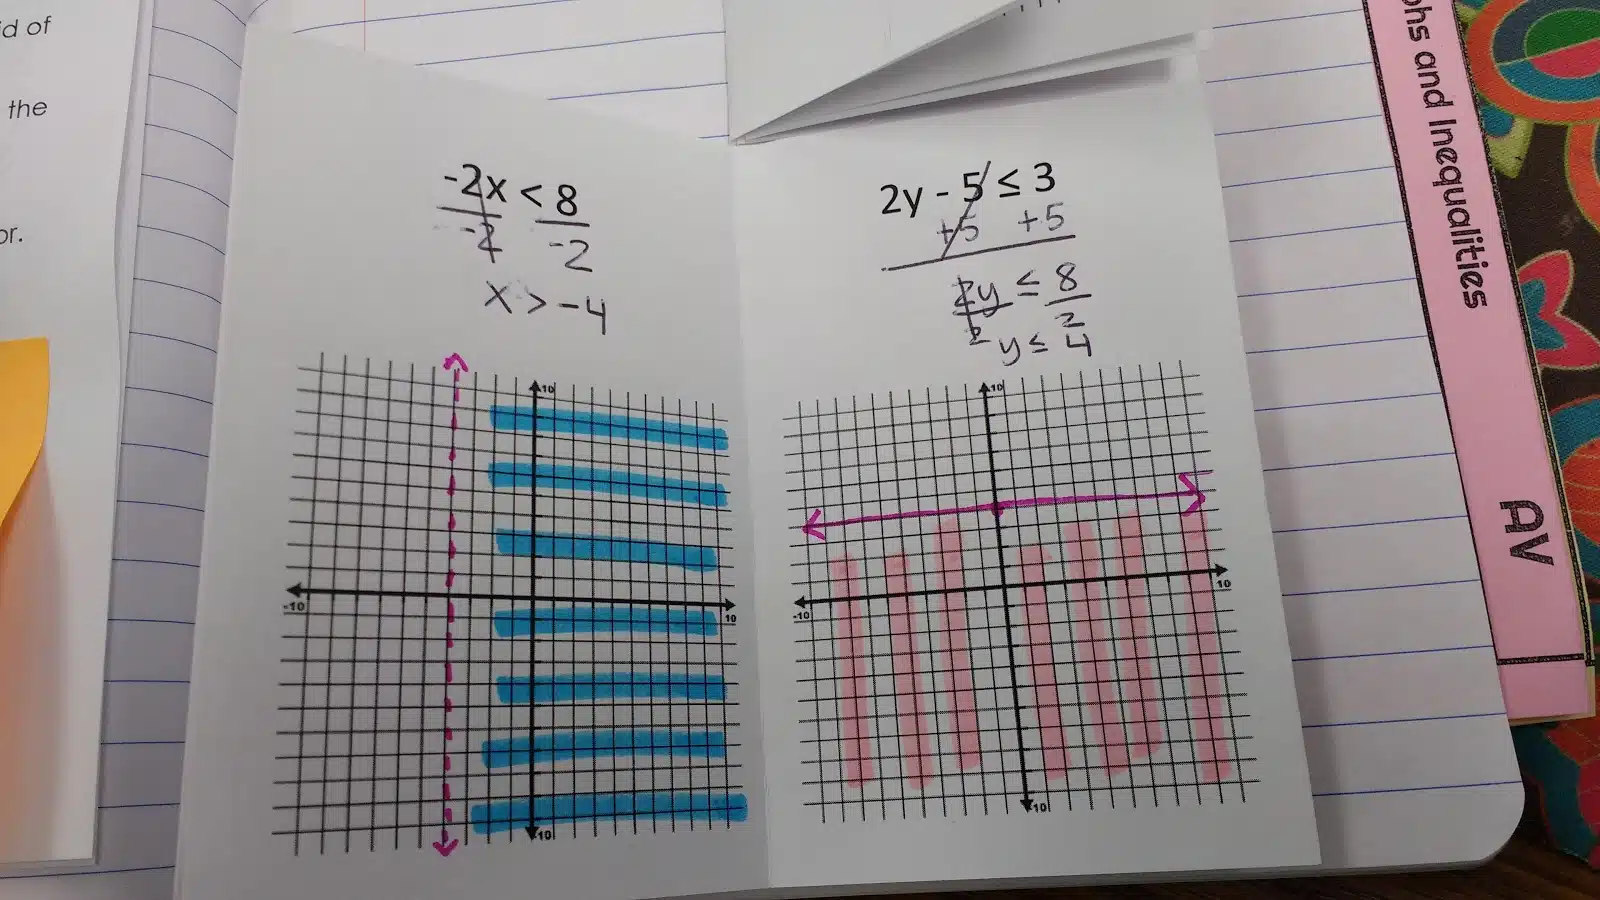 id of
the
or.
-2x < 8
-2 -2
x > -4
10
-10
10
10
2y - 5 ≤ 3
+5 +5
2y ≤ 8
2 2
y ≤ 4
10
-10
10
10
phs and Inequalities
AV